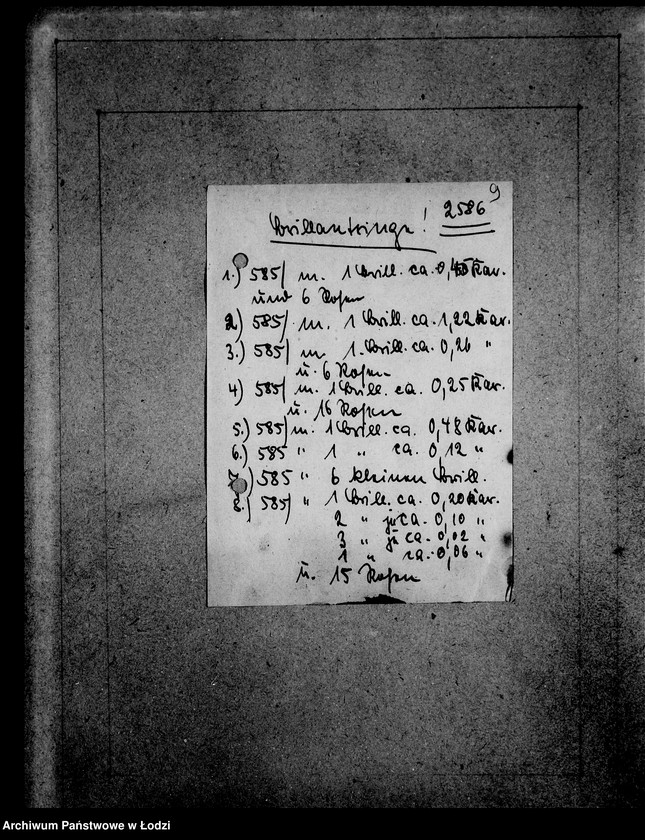 9
2586
Brillantringe!
1.) 585/ m. 1 Brill. ca. 0,45 Kar.
und 6 Rosen
2) 585/ m. 1 Brill. ca. 1,22 Kar.
3.) 585/ m 1. Brill. ca. 0,26 "
u. 6 Rosen
4) 585/ m. 1 Brill. ca. 0,25 Kar.
u. 16 Rosen
5.) 585/ m. 1 Brill. ca. 0,48 Kar.
6.) 585 " 1 " ca. 0,12 "
7.) 585 " 6 kleinen Brill.
8.) 585/ " 1 Brill. ca. 0,20 Kar.
2 " je ca. 0,10 "
3 " je ca. 0,02 "
1 " ca. 0,06 "
u. 15 Rosen
Archiwum Państwowe w Łodzi